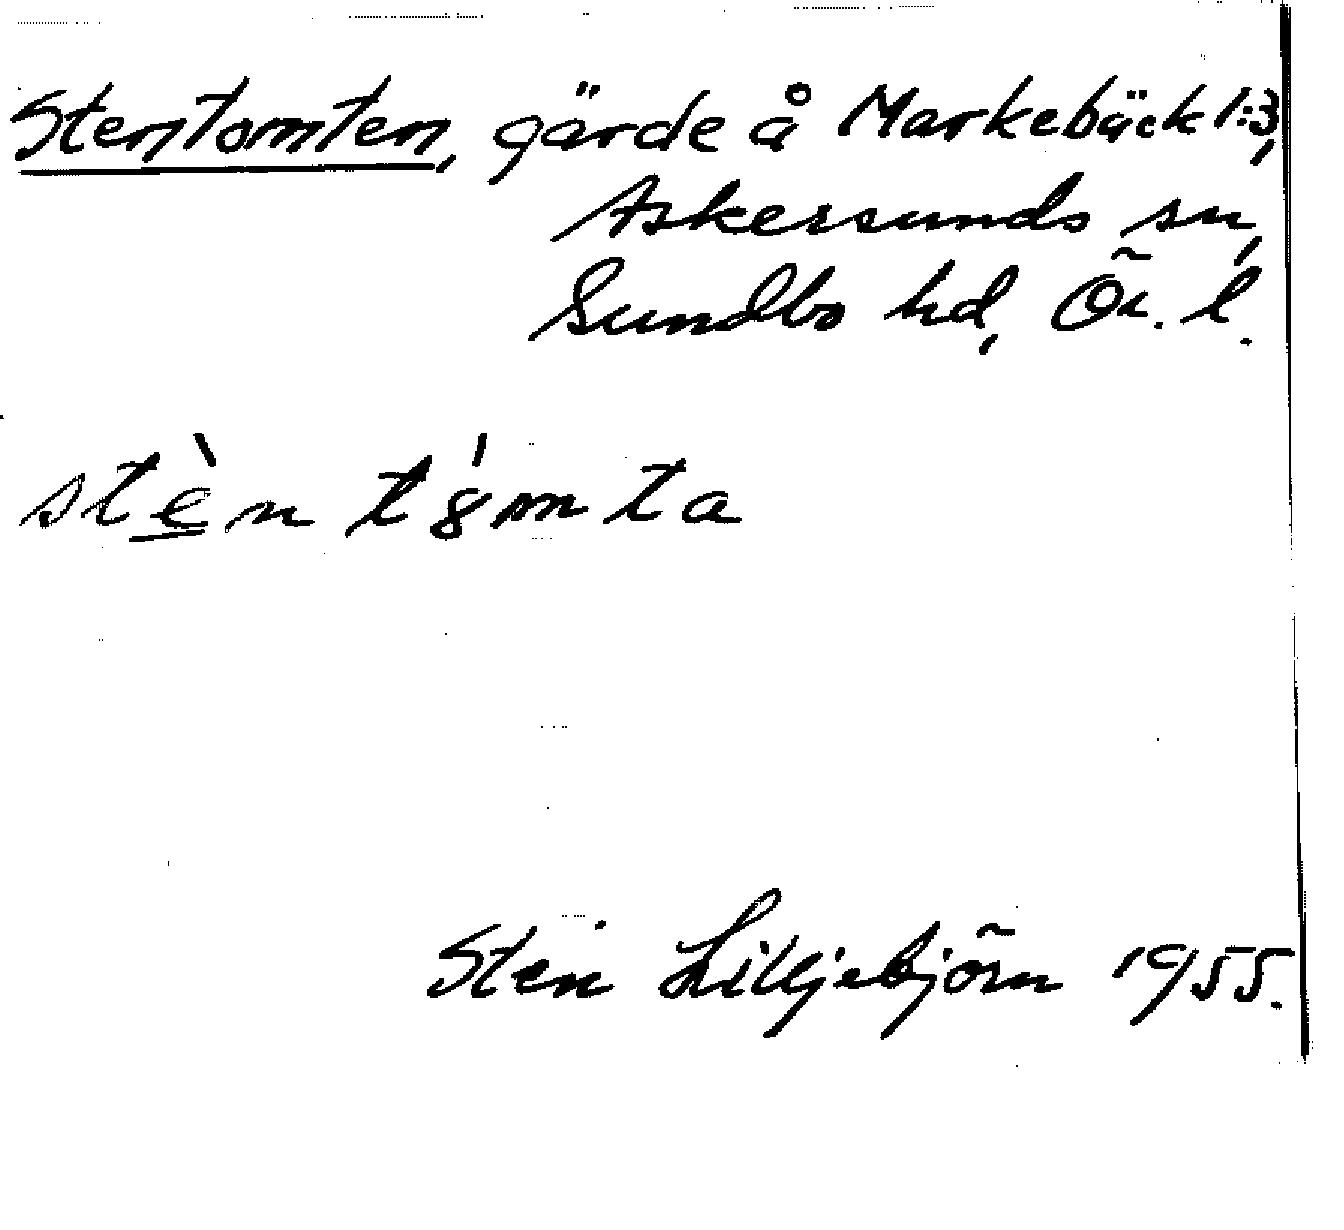 Stentomten, gärde å Markebäck 1:3,
Askersunds sn,
Sundbo hd, Ör. l.
stèn t8́mta
Sten Lilljebjörn 1955.